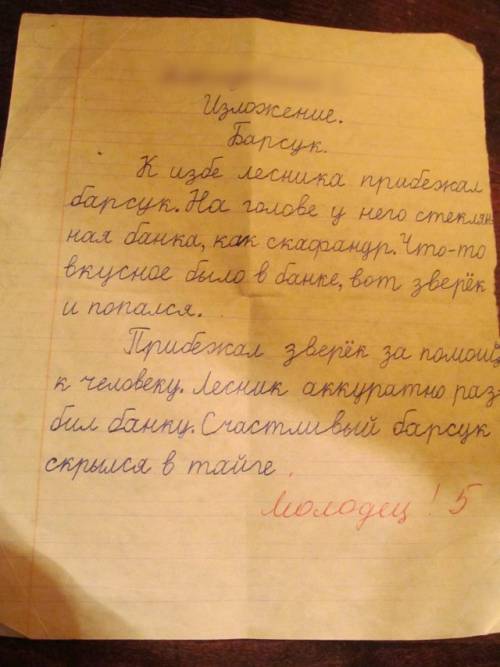 Изложение.
Барсук.
К избе лесника прибежал
барсук. На голове у него стеклян
ная банка, как скафандр. Что-то
вкусное было в банке, вот зверёк
и попался.
Прибежал зверёк за помощ
к человеку. Лесник аккуратно раз-
бил банку. Счастливый барсук
скрылся в тайге.
Молодец! 5